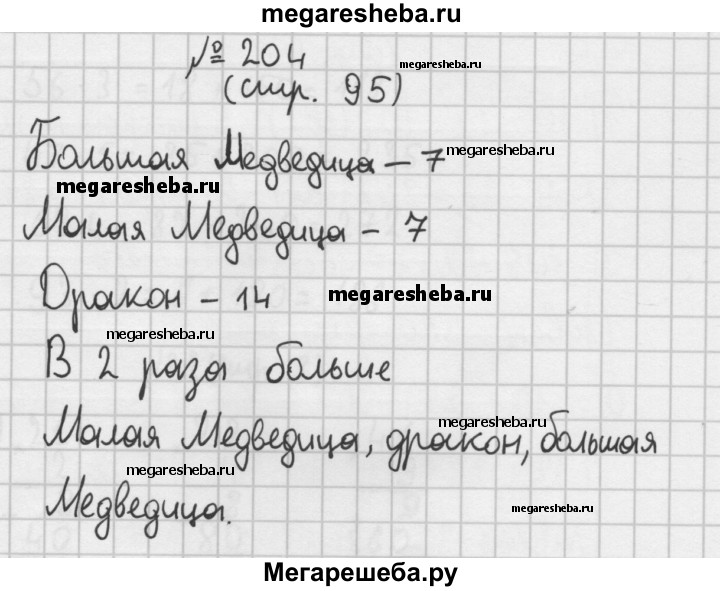 megaresheba.ru
№ 204
megaresheba.ru
(стр. 95)
Большая Медведица – 7
megaresheba.ru
megaresheba.ru
Малая Медведица – 7
Дракон – 14
megaresheba.ru
megaresheba.ru
В 2 раза больше
megaresheba.ru
Малая Медведица, дракон, большая
megaresheba.ru
Медведица.
megaresheba.ru
Мегарешеба.ру